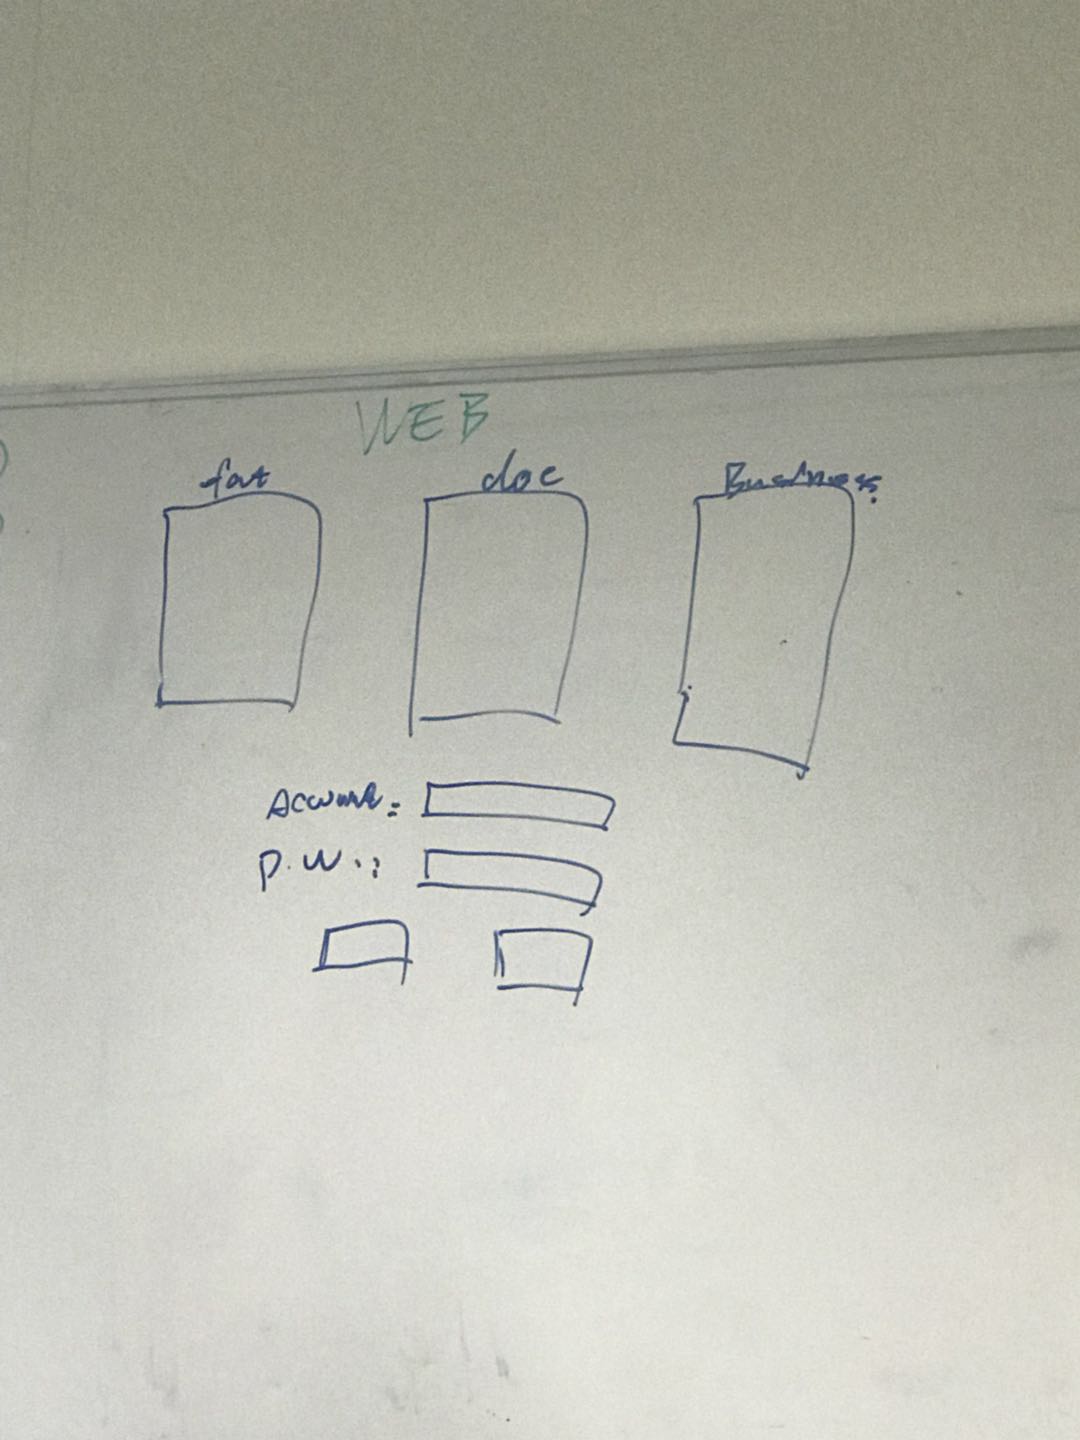 WEB
fat
doc
Business
Account:
P.W.: